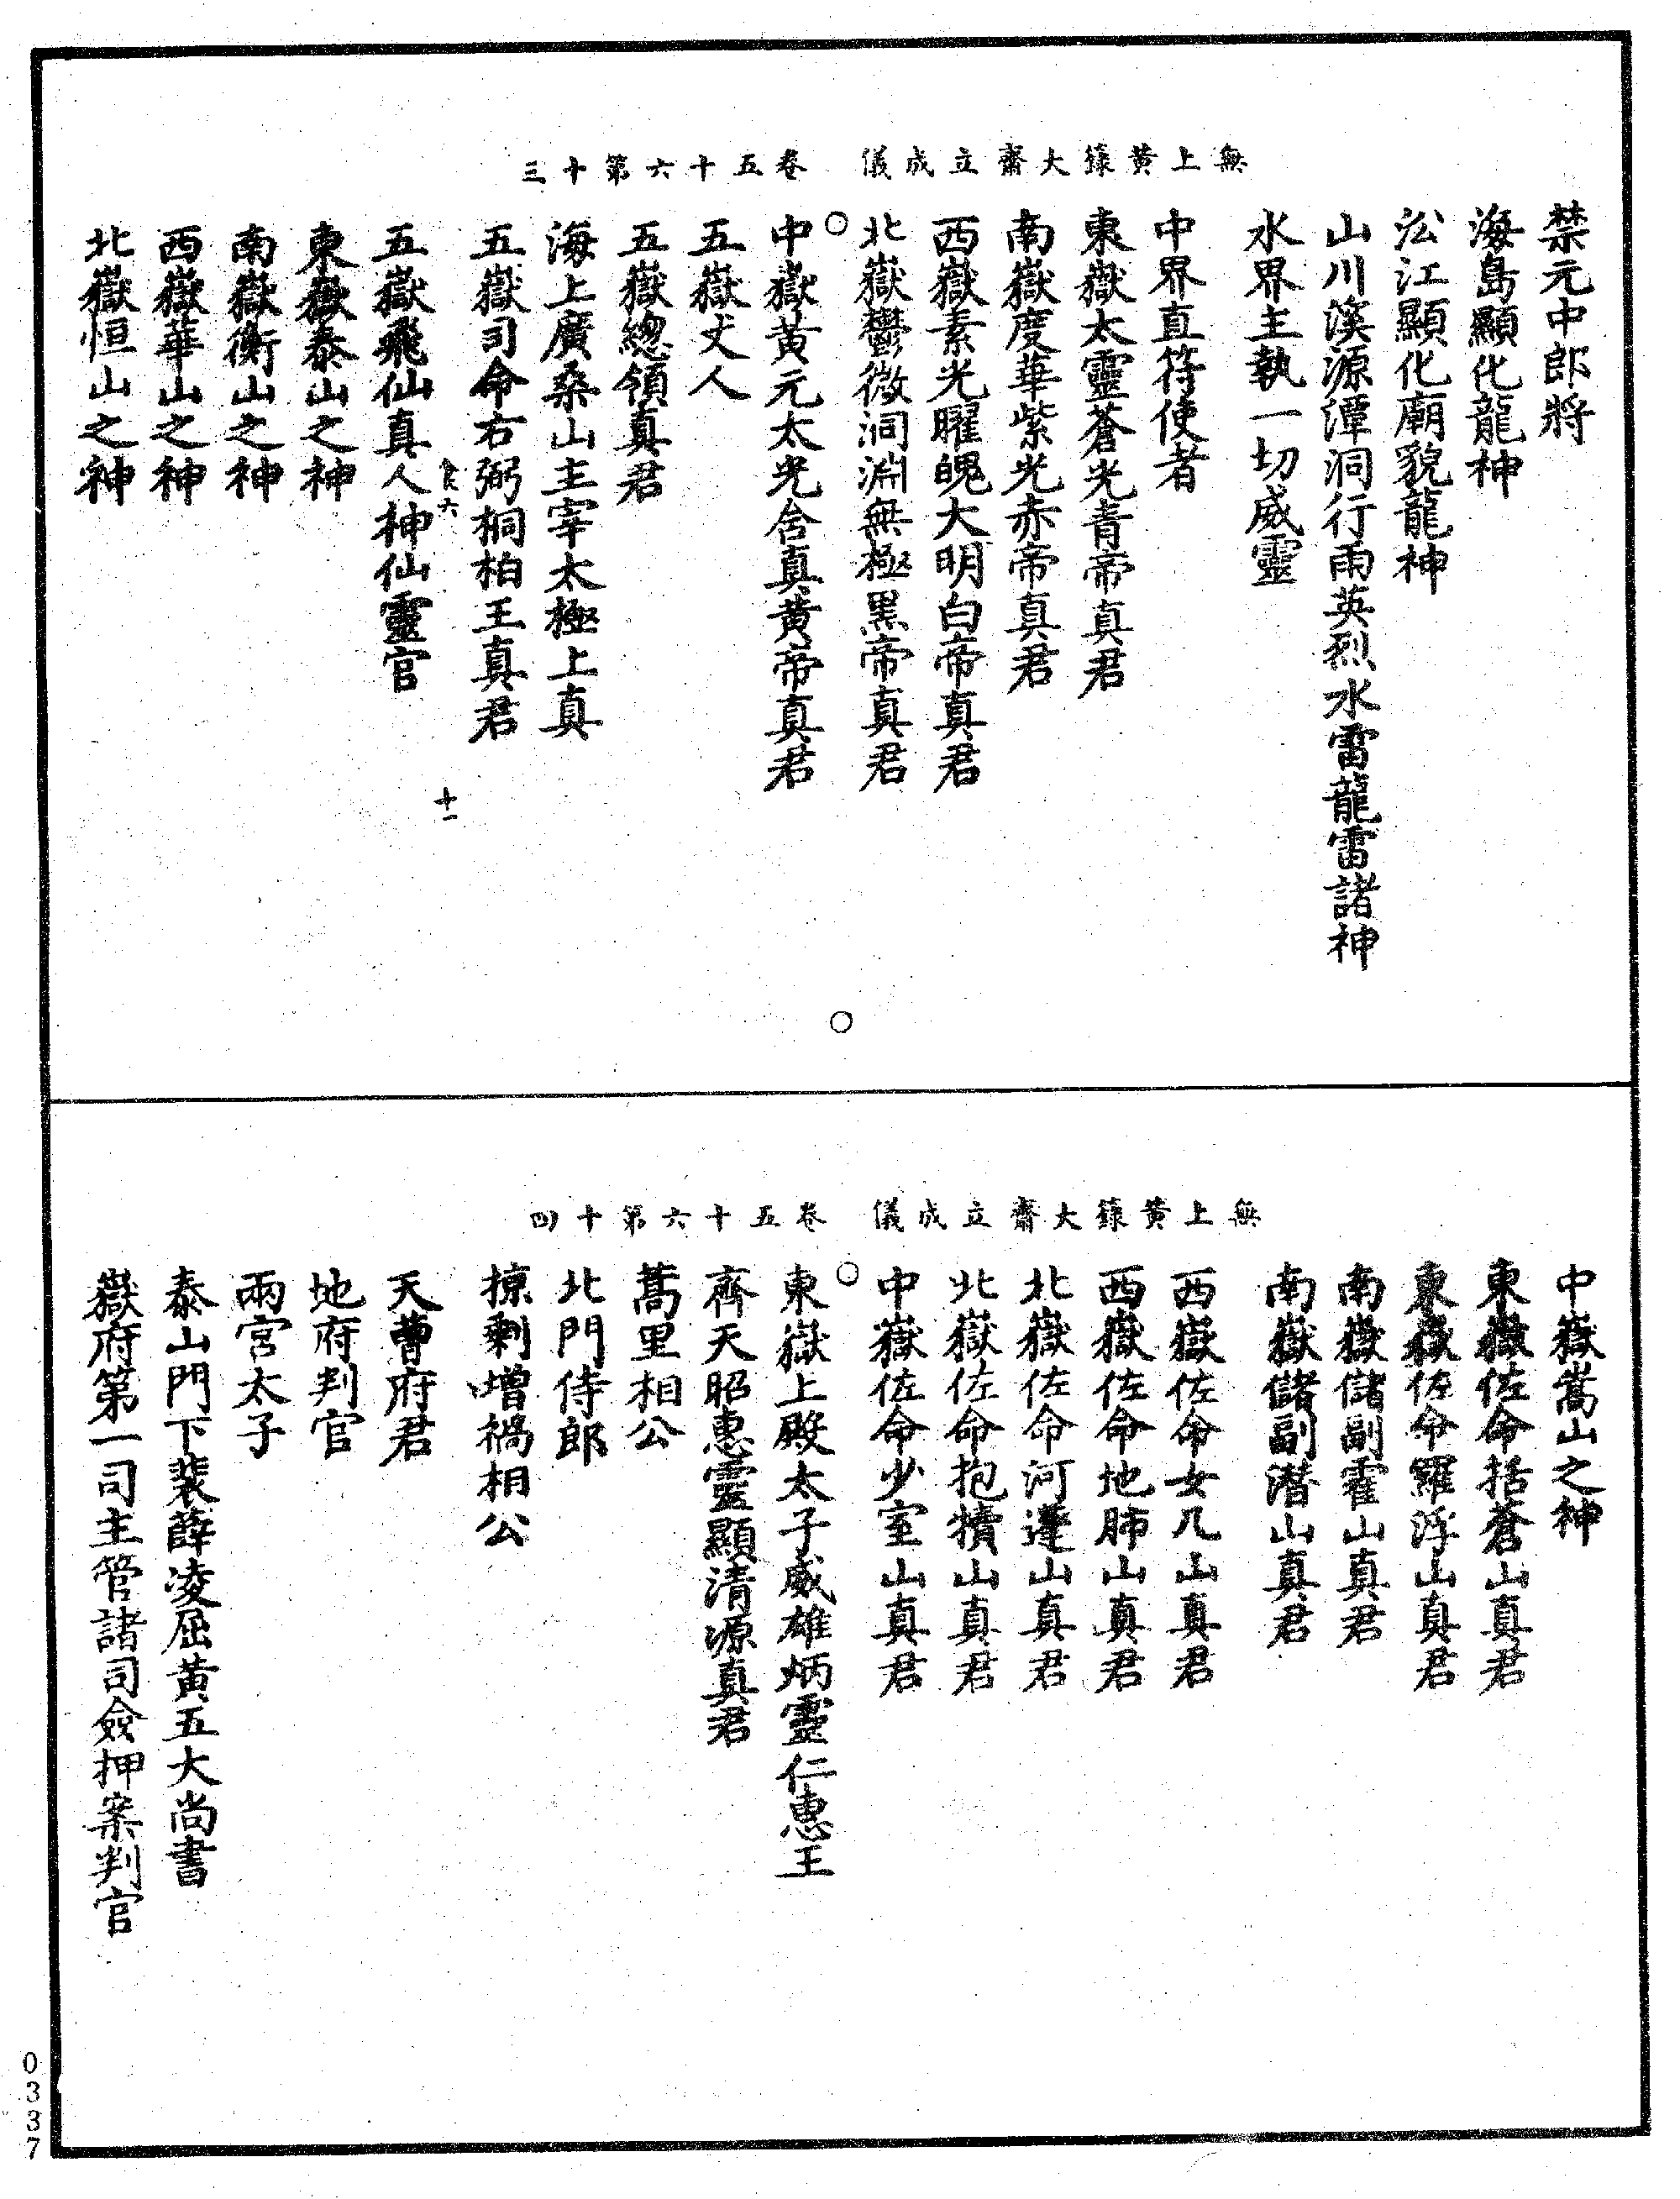 無上黃籙大齋立成儀　卷五十六第十三
禁元中郎將
海島顯化龍神
㳂江顯化廟貌龍神
山川溪源潭洞行雨英烈水雷龍雷諸神
水界主執一切威靈
中界直符使者
東嶽太靈蒼光青帝真君
南嶽度華紫光赤帝真君
西嶽素光曜魄大明白帝真君
北嶽鬱微洞淵無極黑帝真君
中嶽黃元太光含真黃帝真君
五嶽丈人
五嶽總領真君
海上廣桑山主宰太極上真
五嶽司命右弼桐柏王真君
食六　十一
五嶽飛仙真人神仙靈官
東嶽泰山之神
南嶽衡山之神
西嶽華山之神
北嶽恒山之神
無上黃籙大齋立成儀　卷五十六第十四
中嶽嵩山之神
東嶽佐命括蒼山真君
東嶽佐命羅浮山真君
南嶽儲副霍山真君
南嶽儲副潛山真君
西嶽佐命女几山真君
西嶽佐命地肺山真君
北嶽佐命河逢山真君
北嶽佐命抱犢山真君
中嶽佐命少室山真君
東嶽上殿太子威雄炳靈仁惠王
齊天昭惠靈顯清源真君
蒿里相公
北門侍郎
掠剩增禍相公
天曹府君
地府判官
兩宮太子
泰山門下裴薛凌屈黃五大尚書
嶽府第一司主管諸司僉押案判官
0337